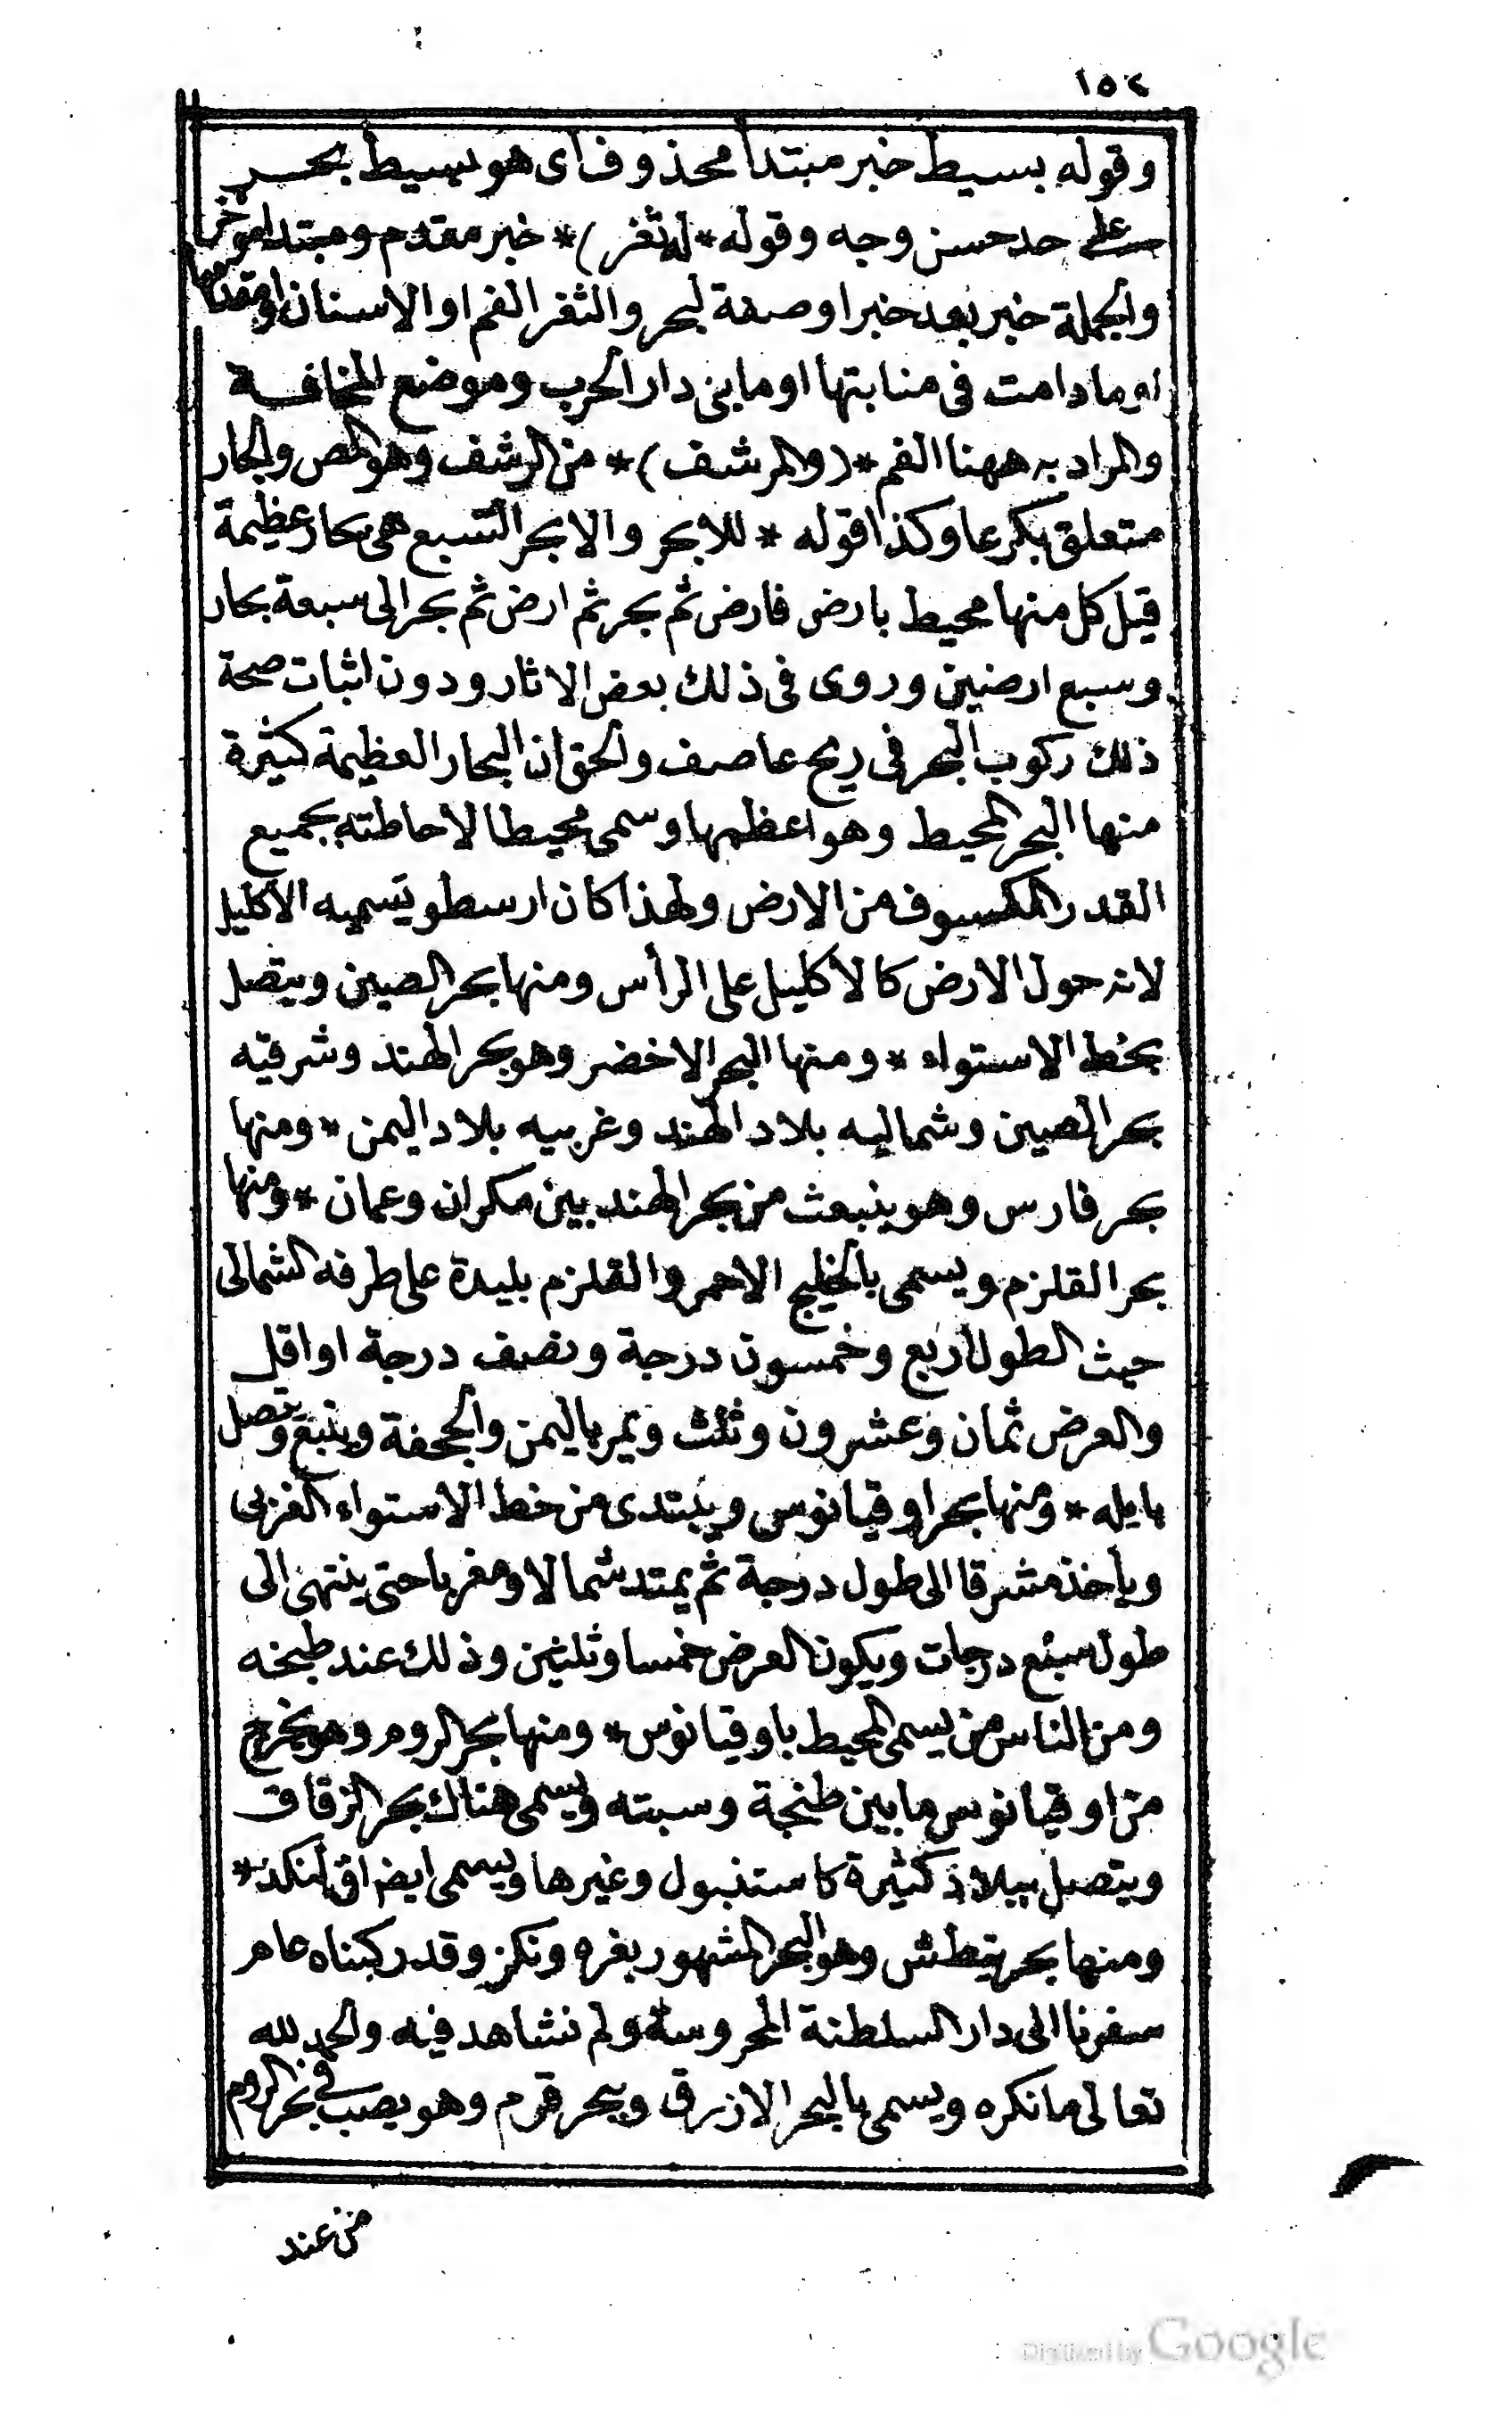 ١٥٢
وقوله بسيط خبر مبتدأ محذوف اى هو بسيط بحر
على حد حسن وجه وقوله * (له ثغر) * خبر مقدم ومبتدا موخر
والجملة خبر بعد خبر او صفة لبحر والثغر الفم او الاسنان او مقدمها
او ما دامت فى منابتها او ما يلى دار الحرب وموضع المخافة
والمراد به ههنا الفم * (والمرشف) * من الرشف وهو المص والجار
متعلق بكرعا وكذا قوله * للابحر والابحر السبع هى بحار عظيمة
قيل كل منها محيط بارض فارض ثم بحر ثم ارض ثم بحر الى سبعة بحار
وسبع ارضين وروى فى ذلك بعض الاثار ودون اثبات صحة
ذلك ركوب البحر فى ريح عاصف والحق ان البحار العظيمة كثيرة
منها البحر المحيط وهو اعظمها وسمى محيطا لاحاطته بجميع
القدر المكسوف من الارض ولهذا كان ارسطو يسميه الاكليل
لانه حول الارض كالاكليل على الرأس ومنها بحر الصين ويتصل
بخط الاستواء * ومنها البحر الاخضر وهو بحر الهند وشرقيه
بحر الصين وشماليه بلاد الهند وغربيه بلاد اليمن * ومنها
بحر فارس وهو ينبعث من بحر الهند بين مكران وعمان * ومنها
بحر القلزم ويسمى بالخليج الاحمر والقلزم بليدة على طرفه الشمالى
حيث الطول اربع وخمسون درجة ونصف درجة او اقل
والعرض ثمان وعشرون وثلث ويمر باليمن والجحفة وينبع ويتصل
بايله * ومنها بحر اوقيانوس ويبتدى من خط الاستواء الغربى
ويأخذ مشرقا الى طول درجة ثم يمتد شمالا ومغربا حتى ينتهى الى
طول سبع درجات ويكون العرض خمسا وثلثين وذلك عند طبخه
ومن الناس من يسمى المحيط باوقيانوس * ومنها بحر الروم وهو يخرج
من اوقيانوس ما بين طنجة وسبته ويسمى هناك بحر الزقاق
ويتصل ببلاد كثيرة كاستنبول وغيرها ويسمى ايضا اق دنكز *
ومنها بحر نيطش وهو البحر المشهور بقره ونكز وقد ركبناه عام
سفرنا الى دار السلطنة المحروسة ولم نشاهد فيه والحمد لله
تعالى ما نكره ويسمى بالبحر الازرق وببحر قرم وهو يصب فى بحر الروم
من عند
Digitized by Google